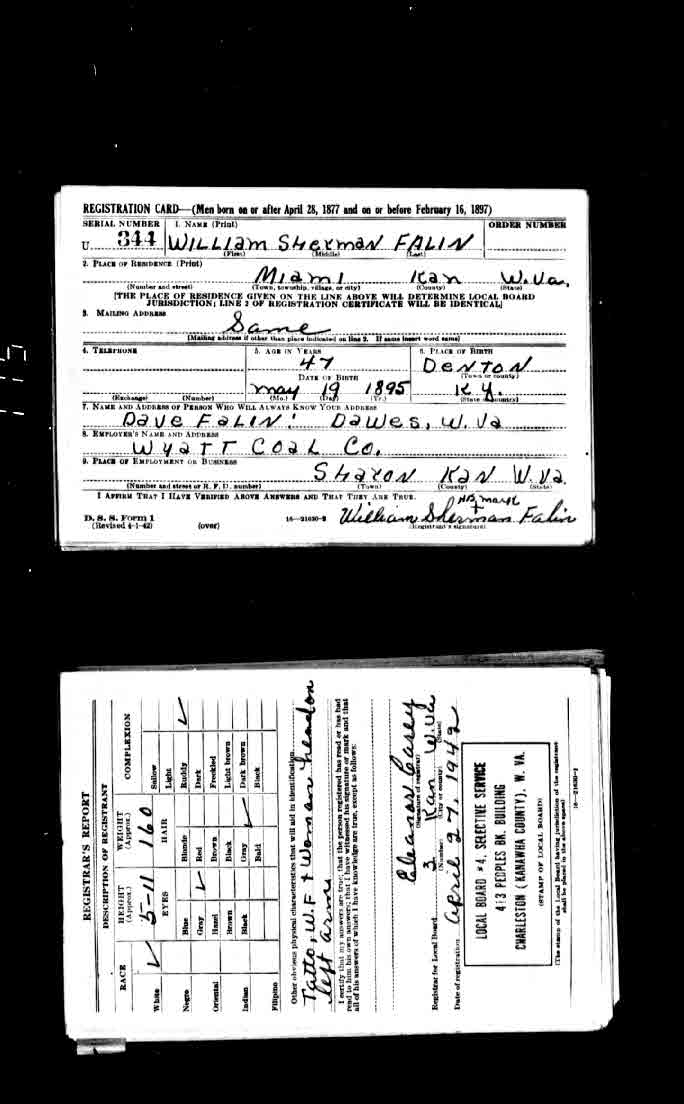 REGISTRATION CARD—(Men born on or after April 28, 1877 and on or before February 16, 1897)
SERIAL NUMBER 1. NAME (Print) ORDER NUMBER
U 344 WILLIAM SHERMAN FALIN
(First) (Middle) (Last)
2. PLACE OF RESIDENCE (Print)
MIAMI KAN W.VA.
(Number and street) (Town, township, village, or city) (County) (State)
[THE PLACE OF RESIDENCE GIVEN ON THE LINE ABOVE WILL DETERMINE LOCAL BOARD
JURISDICTION; LINE 2 OF REGISTRATION CERTIFICATE WILL BE IDENTICAL]
3. MAILING ADDRESS
Same
[Mailing address if other than place indicated on line 2. If same insert word same]
4. TELEPHONE 5. AGE IN YEARS 6. PLACE OF BIRTH
47 DENTON
DATE OF BIRTH (Town or county)
May 19 1895 KY.
(Exchange) (Number) (Mo.) (Day) (Yr.) (State or country)
7. NAME AND ADDRESS OF PERSON WHO WILL ALWAYS KNOW YOUR ADDRESS
DAVE FALIN. DAWES, W.VA
8. EMPLOYER'S NAME AND ADDRESS
WYATT COAL CO.
9. PLACE OF EMPLOYMENT OR BUSINESS
SHARON KAN W.VA.
(Number and street or R. F. D. number) (Town) (County) (State)
I AFFIRM THAT I HAVE VERIFIED ABOVE ANSWERS AND THAT THEY ARE TRUE.
His mark
D. S. S. Form 1 16—21630-2 William Sherman Falin
(Revised 4-1-42) (over) (Registrant's signature)
REGISTRAR'S REPORT
DESCRIPTION OF REGISTRANT
RACE HEIGHT (Approx.) WEIGHT (Approx.) COMPLEXION
White ✓ 5-11 160 Sallow
EYES HAIR Light
Negro Blue Blonde Ruddy ✓
Gray ✓ Red Dark
Oriental Hazel Brown Freckled
Brown Black Light brown
Indian Black Gray ✓ Dark brown
Bald Black
Filipino
Other obvious physical characteristics that will aid in identification
Tatto, W.F + Woman head on
left arm
I certify that my answers are true; that the person registered has read or has had
read to him his own answers; that I have witnessed his signature or mark and that
all of his answers of which I have knowledge are true, except as follows:
Eleanor Carey
(Signature of registrar)
Registrar for Local Board 3 Kan W.Va
(Number) (City or county) (State)
Date of registration April 27, 1942
LOCAL BOARD #4, SELECTIVE SERVICE
413 PEOPLES BK. BUILDING
CHARLESTON (KANAWHA COUNTY), W. VA.
(STAMP OF LOCAL BOARD)
(The stamp of the Local Board having jurisdiction of the registrant
shall be placed in the above space)
16—21630-1